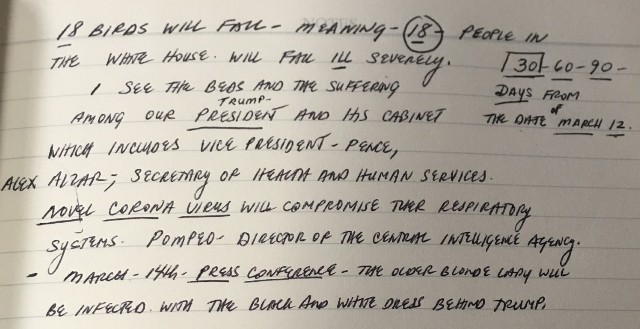 18 BIRDS WILL FALL - MEANING - 18 - PEOPLE IN
THE WHITE HOUSE. WILL FALL ILL SEVERELY.
30 - 60 - 90 -
I SEE THE BEDS AND THE SUFFERING
DAYS FROM
TRUMP -
AMONG OUR PRESIDENT AND HIS CABINET
OF
THE DATE MARCH 12.
WHICH INCLUDES VICE PRESIDENT - PENCE,
ALEX AZAR -, SECRETARY OF HEALTH AND HUMAN SERVICES.
NOVEL CORONA VIRUS WILL COMPROMISE THEIR RESPIRATORY
SYSTEMS. POMPEO - DIRECTOR OF THE CENTRAL INTELLIGENCE AGENCY.
- MARCH - 14th - PRESS CONFERENCE - THE OLDER BLONDE LADY WILL
BE INFECTED. WITH THE BLACK AND WHITE DRESS BEHIND TRUMP.